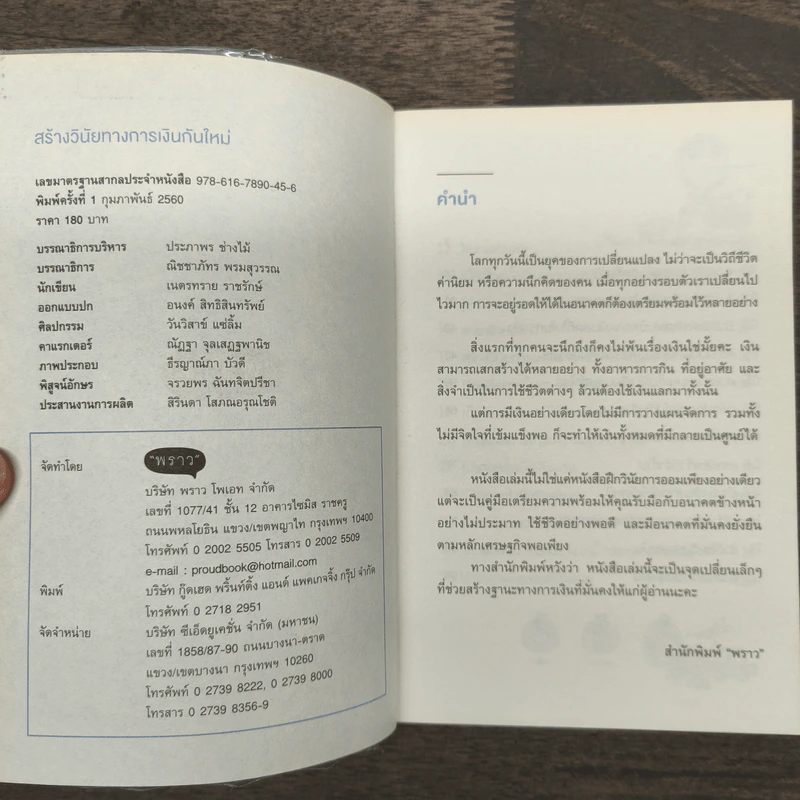 สร้างวินัยทางการเงินกันใหม่
เลขมาตรฐานสากลประจำหนังสือ 978-616-7890-45-6
พิมพ์ครั้งที่ 1 กุมภาพันธ์ 2560
ราคา 180 บาท
บรรณาธิการบริหาร ประภาพร ช่างไม้
บรรณาธิการ ณิชชาภัทร พรมสุวรรณ
นักเขียน เนตรทราย ราชรักษ์
ออกแบบปก อนงค์ สิทธิสินทรัพย์
ศิลปกรรม วันวิสาข์ แซ่ลิ้ม
คาแรกเตอร์ ณัฏฐา จุลเสฏฐพานิช
ภาพประกอบ ธีรญาณ์ภา บัวดี
พิสูจน์อักษร จรวยพร ฉันทจิตปรีชา
ประสานงานการผลิต สิรินดา โสภณอรุณโชติ
จัดทำโดย "พราว"
บริษัท พราว โพเอท จำกัด
เลขที่ 1077/41 ชั้น 12 อาคารไซมิส ราชครู
ถนนพหลโยธิน แขวง/เขตพญาไท กรุงเทพฯ 10400
โทรศัพท์ 0 2002 5505 โทรสาร 0 2002 5509
e-mail : proudbook@hotmail.com
พิมพ์ บริษัท กู๊ดเฮด พริ้นท์ติ้ง แอนด์ แพคเกจจิ้ง กรุ๊ป จำกัด
โทรศัพท์ 0 2718 2951
จัดจำหน่าย บริษัท ซีเอ็ดยูเคชั่น จำกัด (มหาชน)
เลขที่ 1858/87-90 ถนนบางนา-ตราด
แขวง/เขตบางนา กรุงเทพฯ 10260
โทรศัพท์ 0 2739 8222, 0 2739 8000
โทรสาร 0 2739 8356-9
คำนำ
โลกทุกวันนี้เป็นยุคของการเปลี่ยนแปลง ไม่ว่าจะเป็นวิถีชีวิต
ค่านิยม หรือความนึกคิดของคน เมื่อทุกอย่างรอบตัวเราเปลี่ยนไป
ไวมาก การจะอยู่รอดให้ได้ในอนาคตก็ต้องเตรียมพร้อมไว้หลายอย่าง
สิ่งแรกที่ทุกคนจะนึกถึงก็คงไม่พ้นเรื่องเงินใช่มั้ยคะ เงิน
สามารถเสกสร้างได้หลายอย่าง ทั้งอาหารการกิน ที่อยู่อาศัย และ
สิ่งจำเป็นในการใช้ชีวิตต่างๆ ล้วนต้องใช้เงินแลกมาทั้งนั้น
แต่การมีเงินอย่างเดียวโดยไม่มีการวางแผนจัดการ รวมทั้ง
ไม่มีจิตใจที่เข้มแข็งพอ ก็จะทำให้เงินทั้งหมดที่มีกลายเป็นศูนย์ได้
หนังสือเล่มนี้ไม่ใช่แค่หนังสือฝึกวินัยการออมเพียงอย่างเดียว
แต่จะเป็นคู่มือเตรียมความพร้อมให้คุณรับมือกับอนาคตข้างหน้า
อย่างไม่ประมาท ใช้ชีวิตอย่างพอดี และมีอนาคตที่มั่นคงยั่งยืน
ตามหลักเศรษฐกิจพอเพียง
ทางสำนักพิมพ์หวังว่า หนังสือเล่มนี้จะเป็นจุดเปลี่ยนเล็กๆ
ที่ช่วยสร้างฐานะทางการเงินที่มั่นคงให้แก่ผู้อ่านนะคะ
สำนักพิมพ์ "พราว"